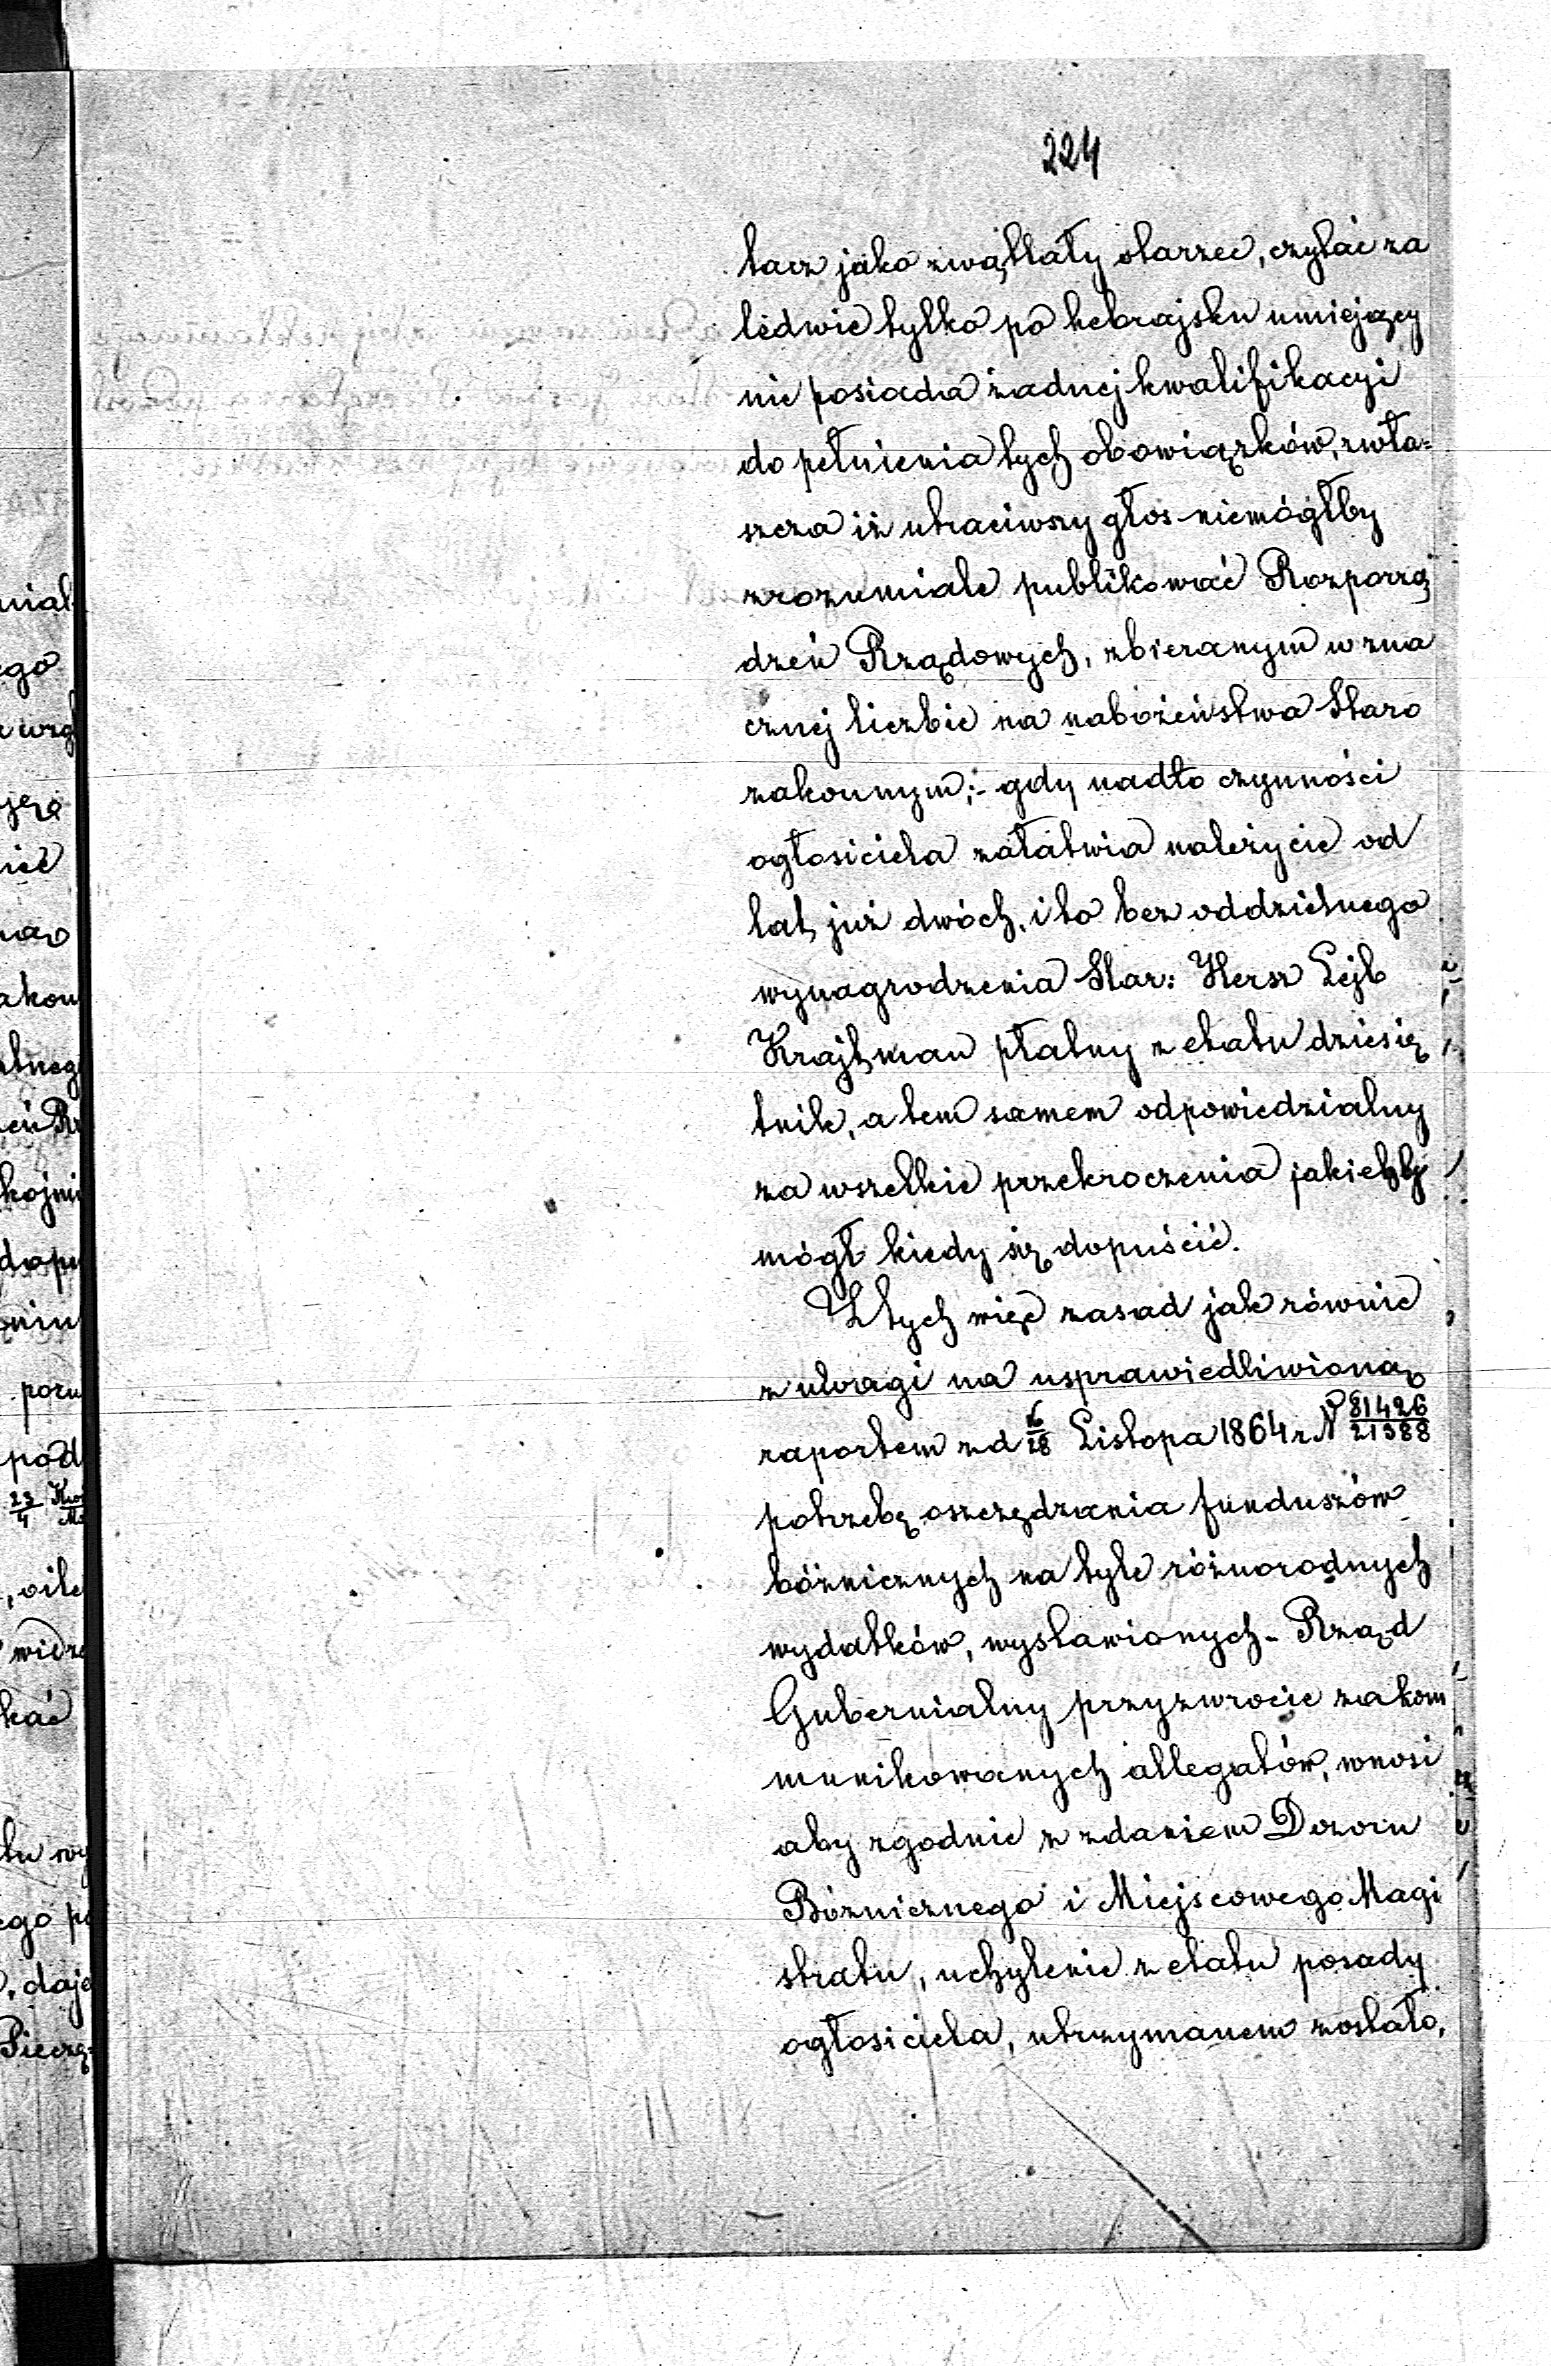 224
tacz jako zwątlały starzec, czytać za
ledwie tylko po hebrajsku umiejący
nie posiada żadnej kwalifikacyi
do pełnienia tych obowiązków, zwła=
szcza iż utraciwszy głos niemógłby
zrozumiale publikować Rozporzą
dzeń Rządowych, zbieranym w zna
cznej liczbie na nabożeństwa Staro
zakonnym; - gdy nadto czynności
ogłosiciela załatwia należycie od
lat już dwóch, i to bez oddzielnego
wynagrodzenia Star: Hersz Lejb
Krajtman płatny z etatu dziesię
tnik, a tem samem odpowiedzialny
za wszelkie przekroczenia jakichby
mógł kiedy się dopuścić.
Z tych więc zasad jak równie
z uwagi na usprawiedliwioną
raportem z d 16/28 Listopa 1864 r N 81426/21388
potrzebę oszczędzania funduszów
bóżnicznych na tyle różnorodnych
wydatków, wystawionych - Rząd
Gubernialny przy zwrocie zakom
munikowanych allegatów, wnosi
aby zgodnie z zdaniem Dozoru
Bóżnicznego i Miejscowego Magi
stratu, uchylenie z etatu posady
ogłosiciela, utrzymanem zostało,